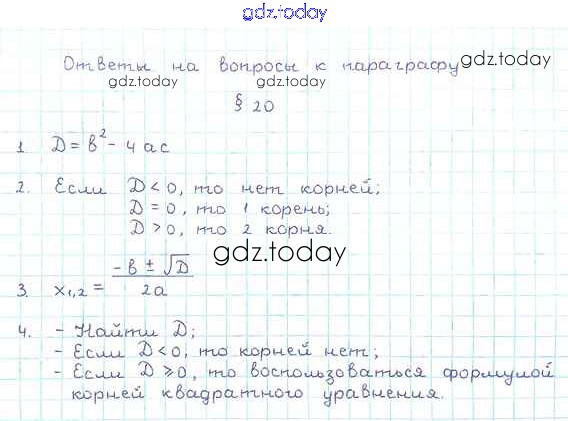 gdz.today
Ответы на вопросы к параграфу gdz.today
gdz.today gdz.today
§ 20
1 D = b² - 4ac
2. Если D < 0, то нет корней;
D = 0, то 1 корень;
D > 0, то 2 корня.
gdz.today
3. x₁,₂ = (-b ± √D) / 2a
4. - Найти D;
- Если D < 0, то корней нет;
- Если D ⩾ 0, то воспользоваться формулой
корней квадратного уравнения.